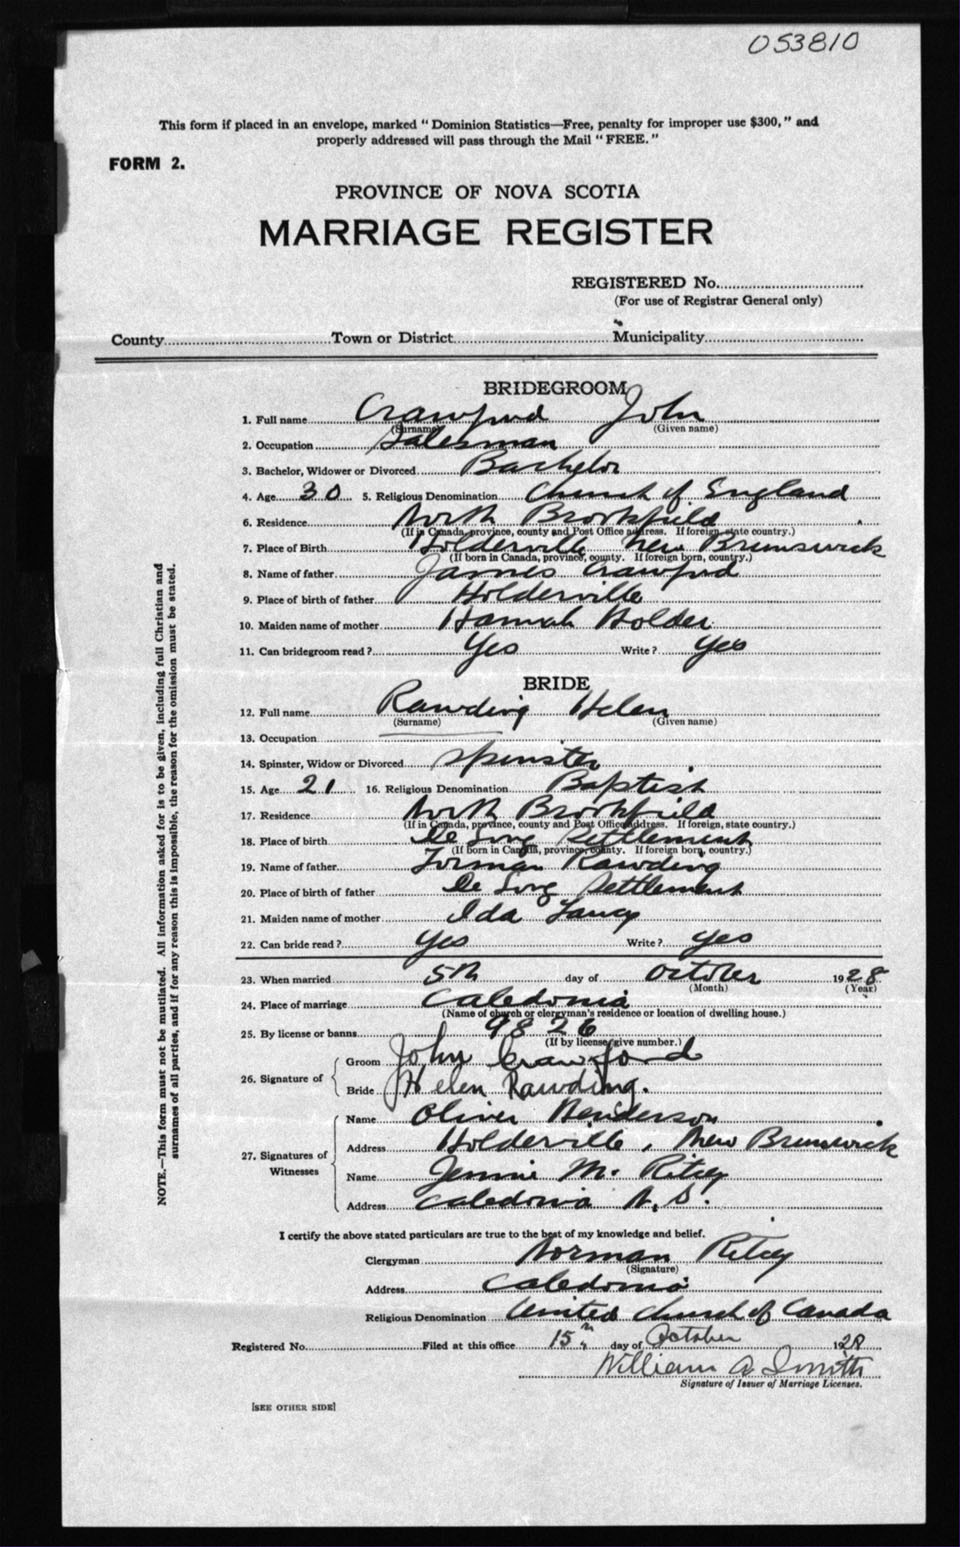 053810
This form if placed in an envelope, marked "Dominion Statistics—Free, penalty for improper use $300," and
properly addressed will pass through the Mail "FREE."
FORM 2.
PROVINCE OF NOVA SCOTIA
MARRIAGE REGISTER
REGISTERED No.
(For use of Registrar General only)
County Town or District Municipality
BRIDEGROOM
1. Full name Crawford John
(Surname) (Given name)
2. Occupation Salesman
3. Bachelor, Widower or Divorced Bachelor
4. Age 30 5. Religious Denomination Church of England
6. Residence North Brookfield
(If in Canada, province, county and Post Office address. If foreign, state country.)
7. Place of Birth Holderville New Brunswick
(If born in Canada, province, county. If foreign born, country.)
8. Name of father James Crawford
9. Place of birth of father Holderville
10. Maiden name of mother Hannah Holder
11. Can bridegroom read? Yes Write? Yes
BRIDE
12. Full name Rawding Helen
(Surname) (Given name)
13. Occupation
14. Spinster, Widow or Divorced Spinster
15. Age 21 16. Religious Denomination Baptist
17. Residence North Brookfield
(If in Canada, province, county and Post Office address. If foreign, state country.)
18. Place of birth De Long Settlement
(If born in Canada, province, county. If foreign born, country.)
19. Name of father Forman Rawding
20. Place of birth of father De Long Settlement
21. Maiden name of mother Ida
22. Can bride read? Yes Write? Yes
23. When married 5th day of October 1928
(Month) (Year)
24. Place of marriage Caledonia
(Name of church or clergyman's residence or location of dwelling house.)
25. By license or banns 9826
(If by license, give number.)
26. Signature of Groom John Crawford
Bride Helen Rawding.
27. Signatures of Witnesses Name Oliver Henderson
Address Holderville, New Brunswick
Name Jennie M. Ritcey
Address Caledonia N.S.
I certify the above stated particulars are true to the best of my knowledge and belief.
Clergyman Norman Ritcey
(Signature)
Address Caledonia
Religious Denomination United Church of Canada
Registered No. Filed at this office 15th day of October 1928
William A Smith
Signature of Issuer of Marriage Licenses.
[SEE OTHER SIDE]
NOTE.—This form must not be mutilated. All information asked for is to be given, including full Christian and
surnames of all parties, and if for any reason this is impossible, the reason for the omission must be stated.